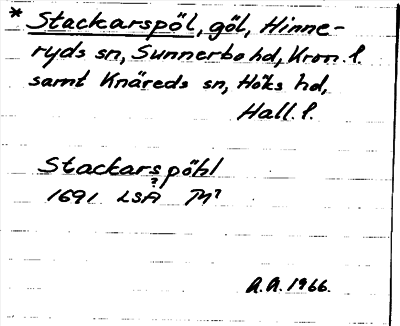 * Stackarspöl, göl, Hinne-
ryds sn, Sunnerbo hd, Kron. l.
samt Knäreds sn, Höks hd,
Hall. l.
Stackarspöhl
?
1691 LSA
A.A. 1966.